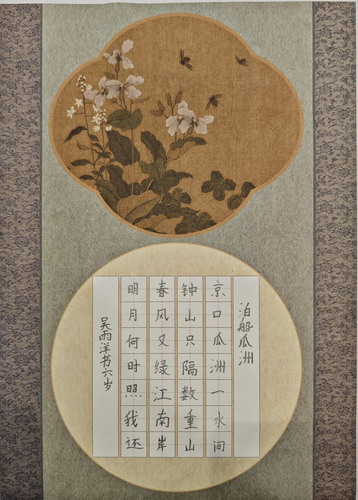 泊船瓜洲
京口瓜洲一水间
钟山只隔数重山
春风又绿江南岸
明月何时照我还
吴雨洋书六岁